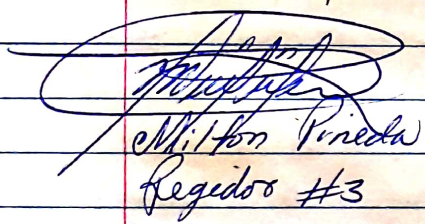 Milton Pineda
Regidor #3